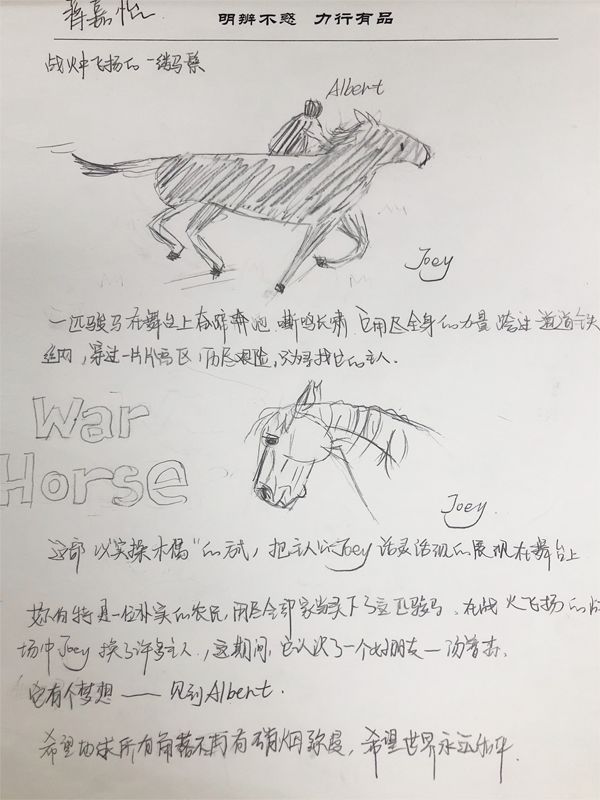 蒋嘉怡
明辨不惑 力行有品
战火中飞扬的一缕马鬃
Albert
Joey
一匹骏马在舞台上奋蹄奔跑,嘶鸣长啸,它用尽全身的力量跨过道道铁
丝网,穿过一片片高区,历尽艰险,只为寻找它的主人.
War
Horse
Joey
这部以实操木偶"的形式,把主人公Joey活灵活现的展现在舞台上
艾伯特是一位朴实的农民,用尽全部家当买下了这匹骏马.在战火飞扬的
场中Joey换了许多主人,这期间,它认识了一个好朋友—汤普森.
它有个梦想——见到Albert.
希望地球所有角落不再有硝烟弥漫,希望世界永远和平.